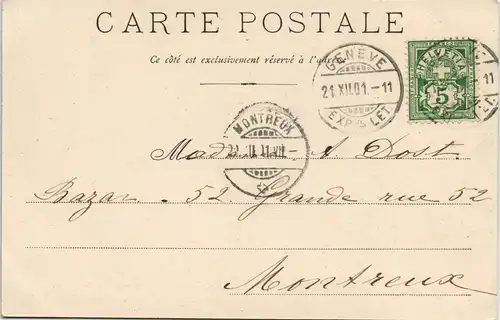 CARTE POSTALE
Ce côté est exclusivement réservé à l'adresse
GENEVE
21.XII.01.-11
EXP. LET.
HELVETIA
5
11
MONTREUX
Madame A Dost.
Bazar - 52. Grande rue 52
Montreux